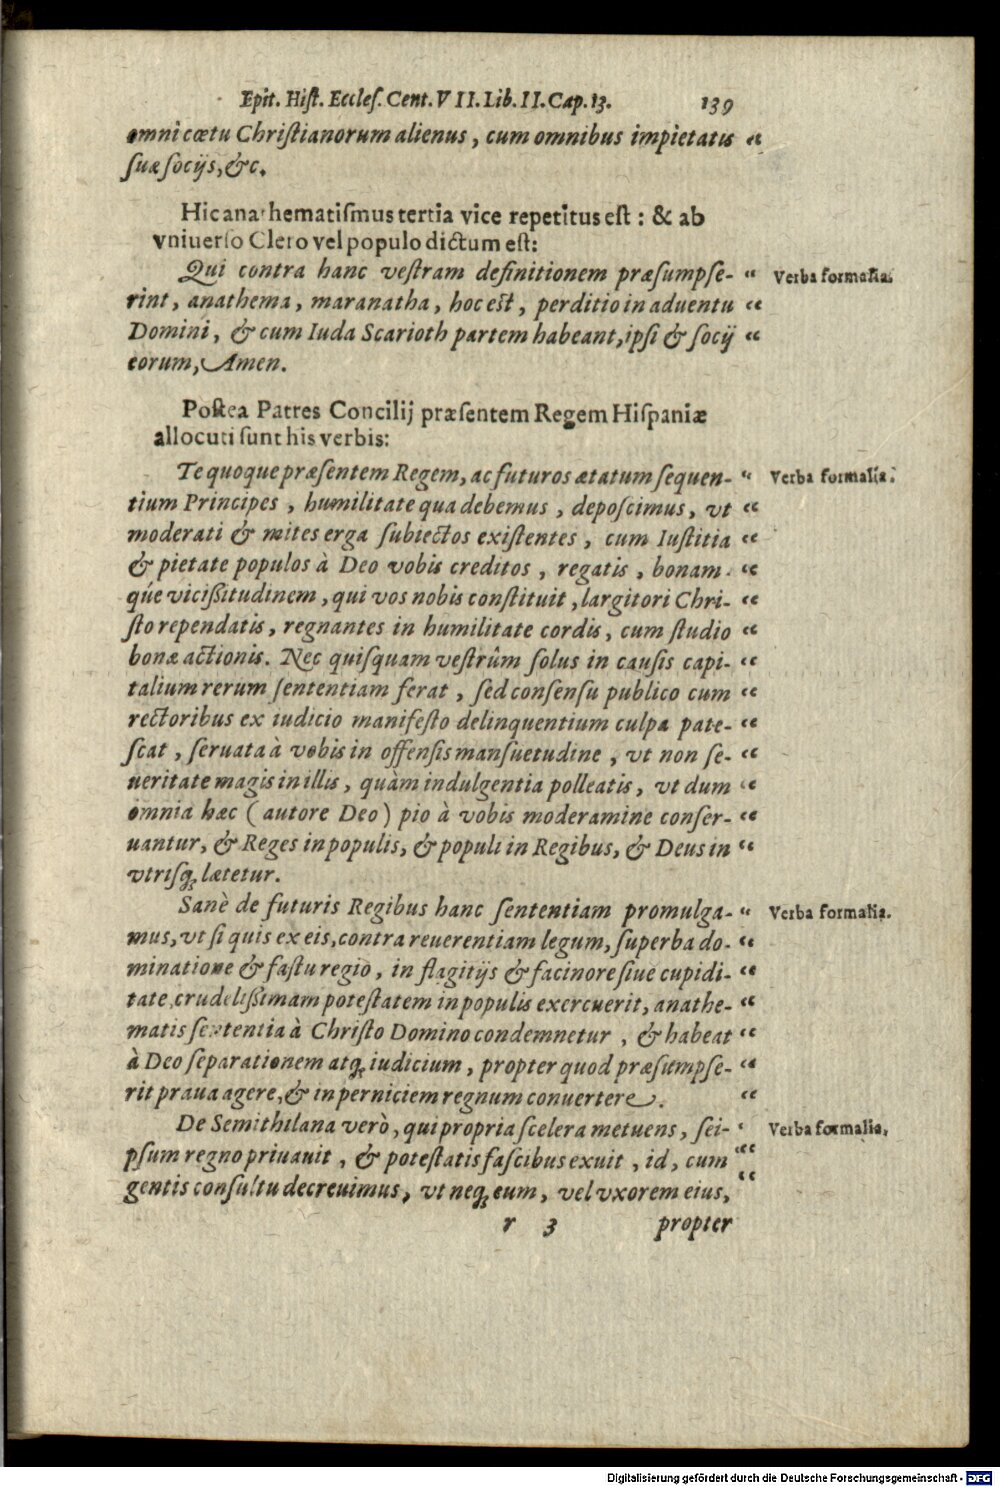 Epit. Hiſt. Eccleſ. Cent. VII. Lib. II. Cap. 13. 139
omni cœtu Chriſtianorum alienus, cum omnibus impietatis “
ſuæ ſocijs, &c.
Hic anathematiſmus tertia vice repetitus eſt: & ab
vniuerſo Clero vel populo dictum eſt:
Qui contra hanc veſtram definitionem præſumpſe- “ Verba formalia.
rint, anathema, maranatha, hoc eſt, perditio in aduentu “
Domini, & cum Iuda Scarioth partem habeant, ipſi & ſocij “
eorum, Amen.
Poſtea Patres Concilij præſentem Regem Hiſpaniæ
allocuti ſunt his verbis:
Te quoque præſentem Regem, ac futuros ætatum ſequen- “ Verba formalia.
tium Principes, humilitate qua debemus, depoſcimus, vt “
moderati & mites erga ſubiectos exiſtentes, cum Iuſtitia “
& pietate populos à Deo vobis creditos, regatis, bonam- “
q́ue viciſſitudinem, qui vos nobis conſtituit, largitori Chri- “
ſto rependatis, regnantes in humilitate cordis, cum ſtudio “
bonæ actionis. Nec quiſquam veſtrûm ſolus in cauſis capi- “
talium rerum ſententiam ferat, ſed conſenſu publico cum “
rectoribus ex iudicio manifeſto delinquentium culpa pate- “
ſcat, ſeruata à vobis in offenſis manſuetudine, vt non ſe- “
ueritate magis in illis, quàm indulgentia polleatis, vt dum “
omnia hæc (autore Deo) pio à vobis moderamine conſer- “
uantur, & Reges in populis, & populi in Regibus, & Deus in “
vtriſq; lætetur.
Sanè de futuris Regibus hanc ſententiam promulga- “ Verba formalia.
mus, vt ſi quis ex eis, contra reuerentiam legum, ſuperba do- “
minatione & faſtu regio, in flagitijs & facinore ſiue cupidi- “
tate, crudeliſſimam poteſtatem in populis exercuerit, anathe- “
matis ſententia à Chriſto Domino condemnetur, & habeat “
à Deo ſeparationem atq; iudicium, propter quod præſumpſe- “
rit praua agere, & in perniciem regnum conuertere. “
De Semithilana verò, qui propria ſcelera metuens, ſei- “ Verba formalia.
pſum regno priuauit, & poteſtatis faſcibus exuit, id, cum “
gentis conſultu decreuimus, vt neq; eum, vel vxorem eius, “
r 3 propter
Digitalisierung gefördert durch die Deutsche Forschungsgemeinschaft - DFG